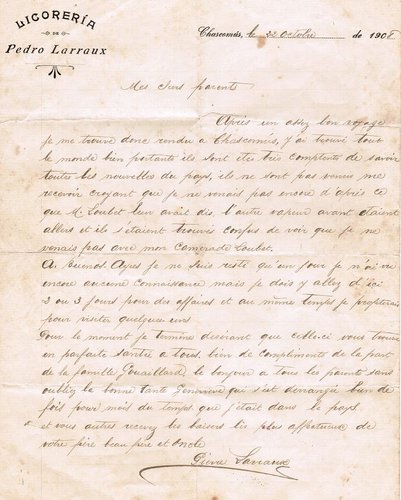 LICORERÍA
DE
Pedro Larraux
Chascomús, le 22 Octobre de 1908
Mes chers parents
Après un assez bon voyage
je me trouve donc rendu a Chascomús, j'ai trouvé tout
le monde bien portants ils sont été très comptents de savoir
toutes les nouvelles du pays, ils ne sont pas venus me
recevoir croyant que je ne venais pas encore d'après ce
que M. Loubet leur avait dis, l'autre vapeur avant étaient
allers et ils s'étaient trouvés confus de voir que je ne
venais pas avec mon camerade Loubet.
A Buenos Ayres je ne suis resté qu'un jour je n'ai vu
encore aucune connaissance mais je dois y aller d'ici
2 ou 3 jours pour des affaires et au même temps je profiterai
pour visiter quelques uns
Pour le moment je termine désirant que celle-ci vous trouve
en parfaite santée a tous, bien de compliments de la part
de la famille le bonjour a tous les parents sans
oubliez la bonne tante Genevieve qui s'est derrangée bien de
fois pour mois du temps que j'était dans le pays
et vous autres recevez les baisers les plus affectueux de
votre père beau père et Oncle
Pierre Larraux